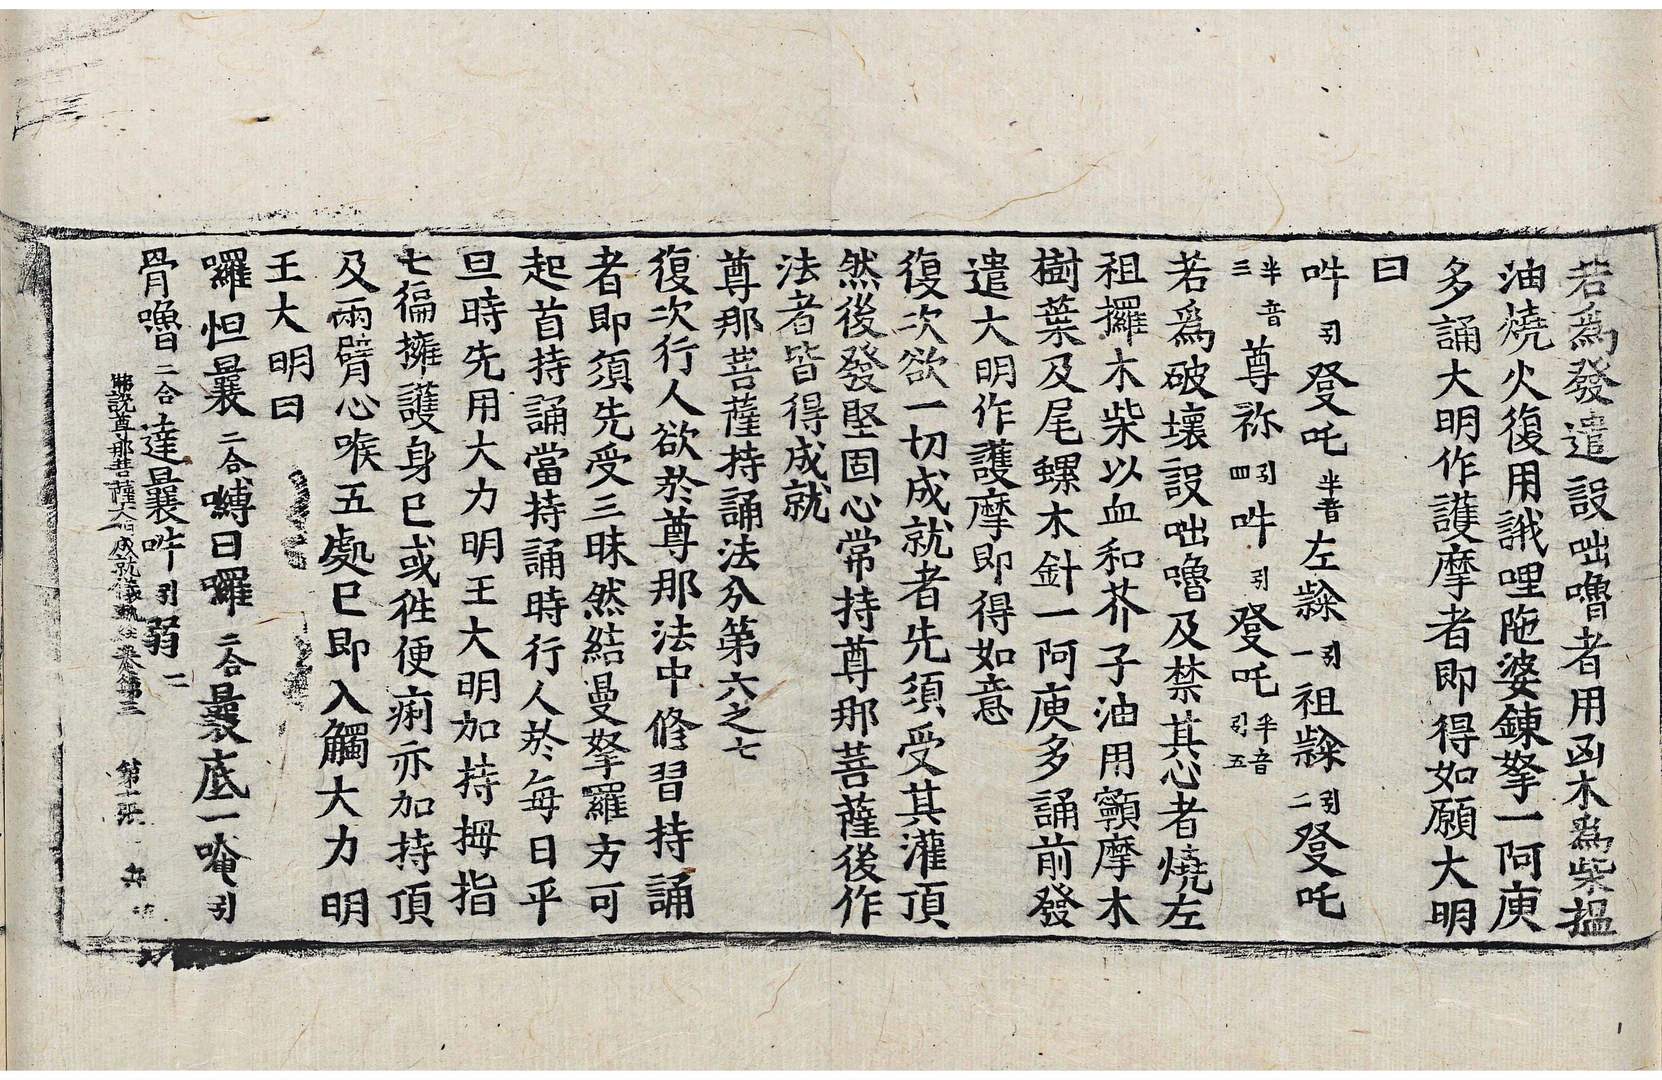 若爲發遣設咄嚕者用凶木爲柴揾
油燒火復用誐哩陁婆錬拏一阿庾
多誦大明作護摩者即得如願大明
曰
吽引發吒半音左黢引一祖黢引二發吒
半音三尊祢引四吽引發吒半音引五
若爲破壞設咄嚕及禁其心者燒左
祖攞木柴以血和芥子油用顙摩木
樹葉及尾螺木針一阿庾多誦前發
遣大明作護摩即得如意
復次欲一切成就者先須受其灌頂
然後發堅固心常持尊那菩薩後作
法者皆得成就
尊那菩薩持誦法分第六之七
復次行人欲於尊那法中修習持誦
者即須先受三昧然結曼拏羅方可
起首持誦當持誦時行人於每日平
旦時先用大力明王大明加持拇指
七徧擁護身已或徃便痢亦加持頂
及兩臂心喉五處已即入觸大力明
王大明曰
囉怛曩二合嚩日囉二合曩底一唵引
骨嚕二合達曩吽引弱二
佛説尊那菩薩大明成就儀軌經卷第三 第十張